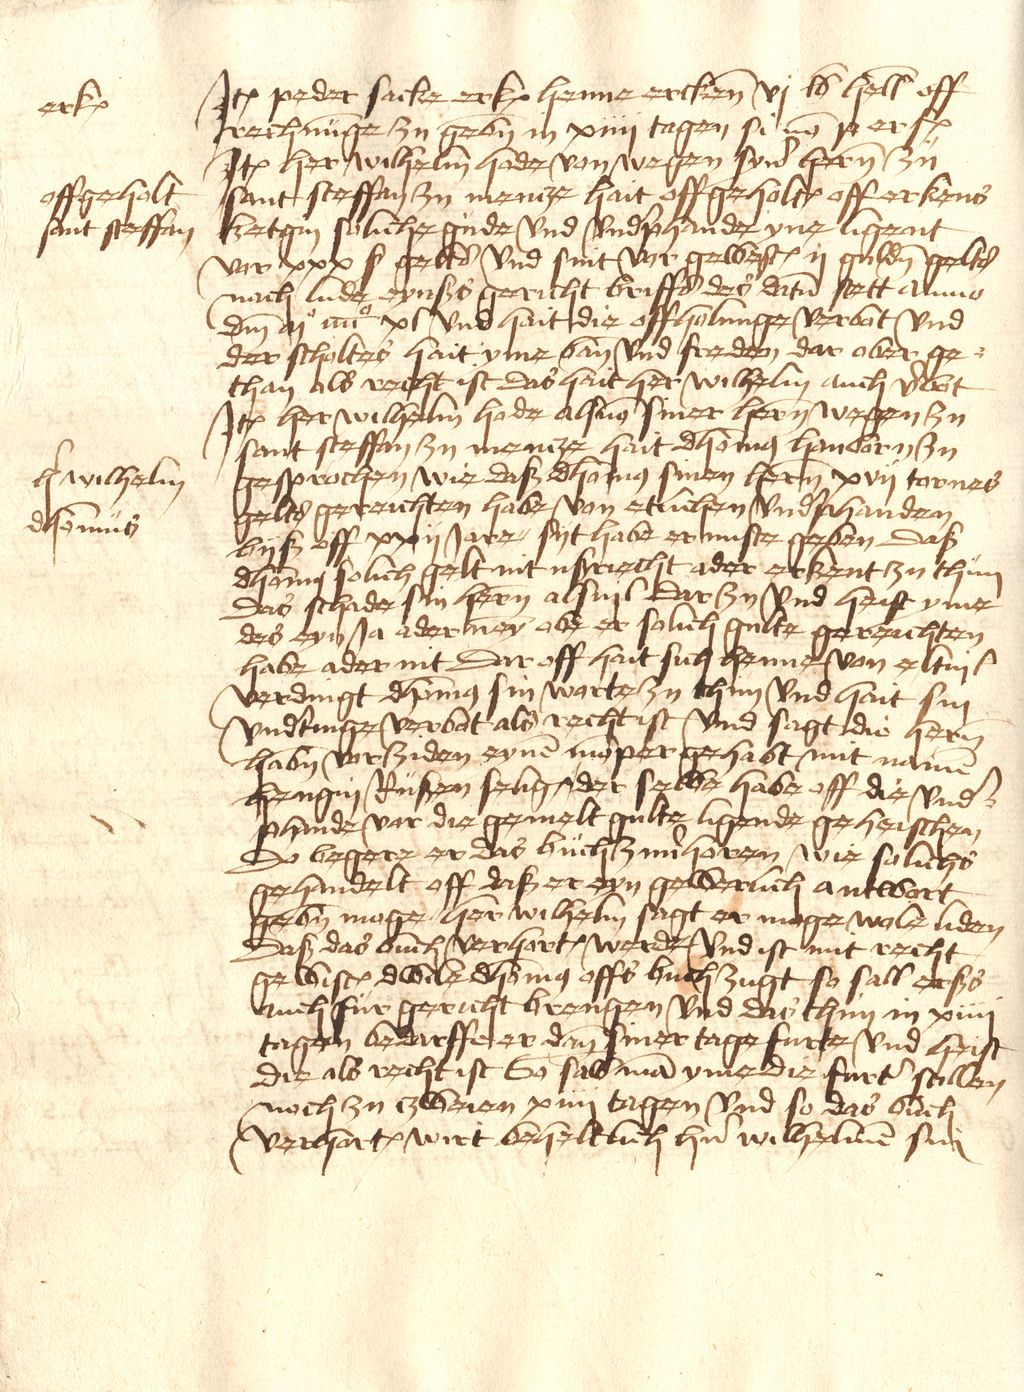 erk(
Jt( peder sacke erk( henne ercken vj lb hell off
rechnunge zu gebn in xiiii tagen si no p erf(
Jt( her wilhelm hade von wegen syner hern zu
offgeholt
sant steffan
sant steffan zu mencze hait offgeholt( off erkens
ketgin soliche gude vnd vndphande yne ligent
vor xxx ß gelts vnd sint vor gewest( ij guldn gelts
nach lude eynßs gericht briffs des datu stett anno
dm m iiiic xl vnd hait die offholunge verbot vnd
der scholtes hait yme ban vnd freden dar ober ge-
than als recht ist das hait her wilhelm auch v'bot
h' wilhelm
dhomus
Jt( her wilhelm hode als mo siner hern wegen zu
sant steffan zu mencze hait dhomo hanborn zu
gesprochen wie daß dhomo sinen hern xvij tornes
gelts gereichten habe von etlichen vndphanden
byß off xxij jare syt habe er nuste geben Daß
dhomo solich gelt nit ußriecht ader erkent zu thun
das schade sin hern als vil dar zu vnd heist yme
des eyn ja ader ney obe er solich gulte gereichten
habe ader nit Dar off hait sich henne von eltuil
verdingt dhomo sin worte zu thun vnd hait sin
vnd'tinge verbot als recht ist vnd sagt die hern
habn vorziden eyne momper gehabt mit name
hengin Rußen selig( der selbe habe off die vnd'-
phande vor die gemelt gulte ligende geheischen
Do begere er das buch zuuerhoren wie solichs
gehandelt off daß er eyn geberlich antwort
gebn moge her wilhelm sagt er moge wole liden
Daß das buch verhort( werde vnd ist mit recht
gewist( dwile dhomo offs buch zugt so sall erßs
auch fur gericht brengen vnd das thun in xiiii
tagen bedarff er dan siner tage furte vnd heist
die als recht ist So sal ma yme die furt' stillen
noch zu zweien xiiii tagen vnd so das buch
verhort( wirt beheltlich h'n wilhelme sin